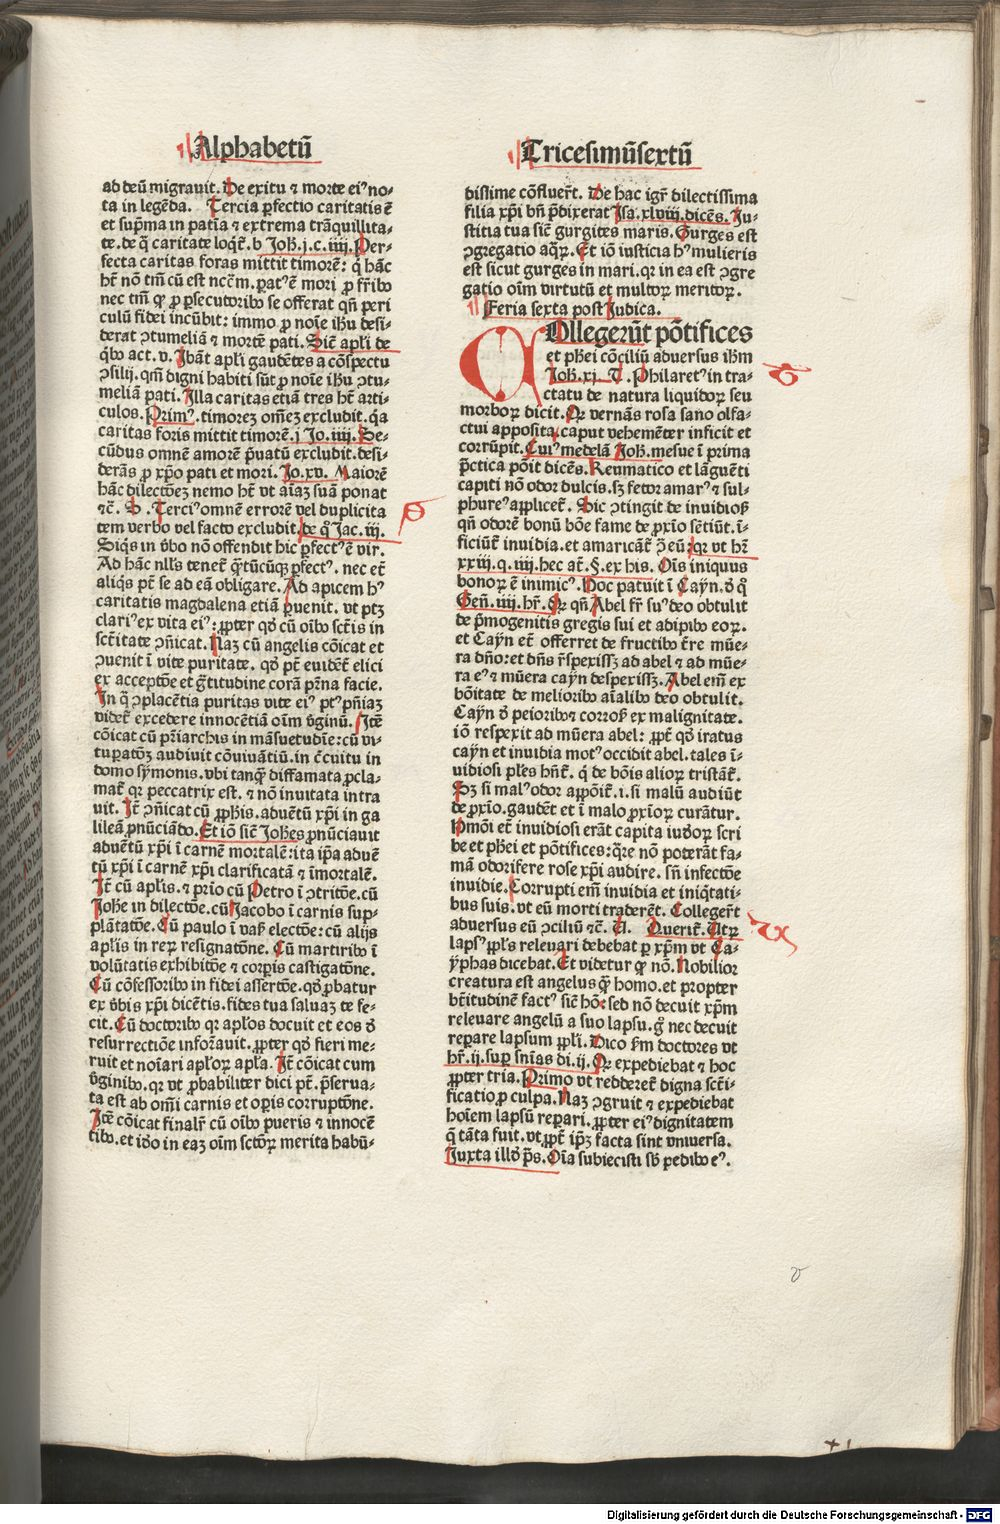 Alphabetū
Tricesimūsextū
ad deū migrauit. De exitu ⁊ morte eiꝰ no-
ta in legēda. Tercia ꝑfectio caritatis ē
et supͬma in patia ⁊ extrema trāquillita-
te. de q̄ caritate loqͭ. b Joh̄. j. c. iiij. Per-
fecta caritas foras mittit timorē: q̄ hāc
hͭ nō tm̄ cū est nccͫ. ꝑatꝰ ē mori ꝓ fr̄ibꝰ
nec tm̄ ꝙ ꝓ ꝑsecutoribꝰ se offerat qn̄ peri
culū fidei incūbit: immo ꝓ noīe ih̄u desi-
derat ꝯtumeliā ⁊ mortē pati. Sic̄ apl̄i de
q̄bꝰ act. v. Ibāt apl̄i gaudētes a cōspectu
ꝯsilij. qm̄ digni habiti sūt ꝓ noīe ih̄u ꝯtu-
meliā pati. Illa caritas etiā tres hͭ arti-
culos. Primꝰ. timoreꝫ omēꝫ excludit. q̄a
caritas foris mittit timorē. j Jo. iiij. Se-
cūdus omnē amorē pͥuatū excludit. desi-
derās ꝓ xp̄o pati et mori. Jo. xv. Maiorē
hāc dilectōeꝫ nemo hͭ vt aīaꝫ suā ponat
⁊c̄. D. Terciꝰ omnē errorē vel duplicita
tem verbo vel facto excludit. de q̄ Jac. iij.
Siqͥs in v̄bo nō offendit hic ꝑfectꝰ ē vir.
Ad hāc nll̄s tenetͬ q̄tūcūqꝫ ꝑfectꝰ. nec etͭ
aliqͥs ptͭ se ad eā obligare. Ad apicem hꝰ
caritatis magdalena etiā ꝑuenit. vt ptꝫ
clariꝰ ex vita eiꝰ: ꝓpter qd̄ cū oībꝰ sctͥs in
sctͥtate ꝯīcat. Naꝫ cū angelis cōicat et
ꝯuenit ī vite puritate. qd̄ ptͭ euidētͬ elici
ex acceptōe et gͣtitudine corā pr̄na facie.
In q̄ ꝯplacētia puritas vite eiꝰ ptꝰ pn̄iaꝫ
videtͬ excedere innocētiā oīm v̄ginū. Itē
cōicat cū pr̄iarchis in māsuetudīe: cū vi-
tuꝑatōꝫ audiuit cōuiuātiū. in cͥcuitu in
domo sẏmonis. vbi tanqͣꝫ diffamata ꝓcla-
matͬ qꝛ peccatrix est. ⁊ nō inuitata intra
uit. Itͭ ꝯīcat cū ꝓph̄is. aduētū xp̄i in ga
lileā ꝓnūciādo. Et iō sic̄ Joh̄es ꝓnūciauit
aduētū xp̄i ī carnē mortalē: ita ip̄a aduē
tū xp̄i ī carnē xp̄i clarificatā ⁊ īmortalē.
Itͭ cū apl̄is. ⁊ prīo cū Petro ī ꝯtritōe. cū
Joh̄e in dilectōe. cū Jacobo ī carnis sup-
plātatōe. Cū paulo ī vas̄ electōe: cū alijs
apl̄is in reꝝ resignatōne. Cū martiribꝰ ī
volūtatis exhibitōe ⁊ corꝑis castigatōne.
Cū cōfessoribꝰ in fidei assertōe. qd̄ ꝓbatur
ex v̄bis xp̄i dicētis. fides tua saluaꝫ te fe-
cit. Cū doctoribꝰ qꝛ apl̄os docuit et eos d̄
resurrectiōe informauit. ꝓpter qd̄ fieri me-
ruit et noīari apl̄oꝝ apl̄a. Itͭ cōicat cum
v̄ginibꝰ. qꝛ vt ꝓbabiliter dici ptͭ. pͬserua-
ta est ab omī carnis et oꝑis corruptōne.
Itē cōicat finalrͥ cū oībꝰ pueris ⁊ innocē
tibꝰ. et iō in eaꝫ oīm sctōꝝ merita habū-
dissime cōfluerͭ. De hac igrͥ dilectissima
filia xp̄i bn̄ pͬdixerat Isa. xlviij. dicēs. Ju-
stitia tua sic̄ gurgites maris. Gurges est
ꝯgregatio aqͣꝝ. Et iō iusticia hꝰ mulieris
est sicut gurges in mari. qꝛ in ea est ꝯgre
gatio oīm virtutū et multoꝝ meritoꝝ.
Feria sexta post Judica.
COllegerūt pōtifices
et ph̄ei cōciliū aduersus ih̄m
Joh̄. xj. T. Philaretꝰ in tra-
ctatu de natura liquidoꝝ seu
morboꝝ dicit. Qꝛ vernās rosa sano olfa-
ctui apposita, caput vehemēter inficit et
corrūpit. Cuiꝰ medelā Joh̄. mesue ī prima
pͣctica pōit dicēs. Reumatico et lāguēti
capiti nō odor dulcis. sꝫ fetor amarꝰ ⁊ sul-
phureꝰ applicetͬ. Sic ꝯtingit de inuidiosꝭ
qn̄ odorē bonū bōe fame de ꝓxīo sētiūt. ī-
ficiūtͬ inuidia. et amaricātͬ ꝯͬ eū: qꝛ vt hr̄
xxiij. q. iiij. hec atͭ. §. ex his. Oīs iniquus
bonoꝝ ē inimicꝰ. Hoc patuit ī Caẏn. d̄ q̄
Gen̄. iiij. hr̄. Qꝛ qn̄ Abel frͬ suꝰ deo obtulit
de pͥmogenitis gregis sui et adipibꝰ eoꝝ.
et Caẏn etͭ offerret de fructibꝰ tͬre mūe-
ra dn̄o: et dn̄s rͬspexissꝫ ad abel ⁊ ad mūe-
ra eꝰ ⁊ mūera caẏn despexissꝫ. Abel em̄ ex
bōitate de melioribꝰ aīalibꝰ deo obtulit.
Caẏn d̄ peioribꝰ⁊ corrosꝭ ex malignitate.
iō respexit ad mūera abel: ꝓptͬ qd̄ iratus
caẏn et inuidia motꝰ occidit abel. tales ī-
uidiosi pl̄es hn̄tͬ. q̄ de bōis alioꝝ tristātͬ.
Sꝫ si malꝰ odor appōitͬ. i. si malū audiūt
de ꝓxīo. gaudēt et ī malo ꝓxīoꝝ curātur.
Hmōi etͭ inuidiosi erāt capita iud̄oꝝ scri
be et ph̄ei et pōtifices: qͣre nō poterāt fa-
mā odorifere rose xp̄i audire. sn̄ infectōe
inuidie. Corrupti em̄ inuidia et iniqͥtati-
bus suis. vt eū morti traderētͬ. Collegerͭt
aduersus eū ꝯciliū ⁊c̄. A. Queritͬ. Utꝝ
lapsꝰ ꝓpl̄s releuari debebat ꝑ xp̄m vt Ca-
ẏphas dicebat. Et videtur ꝙ nō. Nobilior
creatura est angelus qͣꝫ homo. et propter
btͥtudinē factꝰ sic̄ hō: sed nō decuit xp̄m
releuare angelū a suo lapsu. gͦ nec decuit
reꝑare lapsum ꝓpl̄i. Dico sͫ doctores vt
hr̄. ij. suꝑ sn̄ias di. ij. Qꝛ expediebat ⁊ hoc
ꝓpter tria. Primo vt redderetͬ digna sctͥ-
ficatio ꝓ culpa. Naꝫ ꝯgruit ⁊ expediebat
hoīem lapsū reꝑari. ꝓpter eiꝰ dignitatem
q̄ tāta fuit. vt ꝓptͬ ip̄ꝫ facta sint vniuersa.
Juxta illd̄ ps̄. Oīa subiecisti sb̄ pedibꝰ eꝰ.
Digitalisierung gefördert durch die Deutsche Forschungsgemeinschaft - DFG